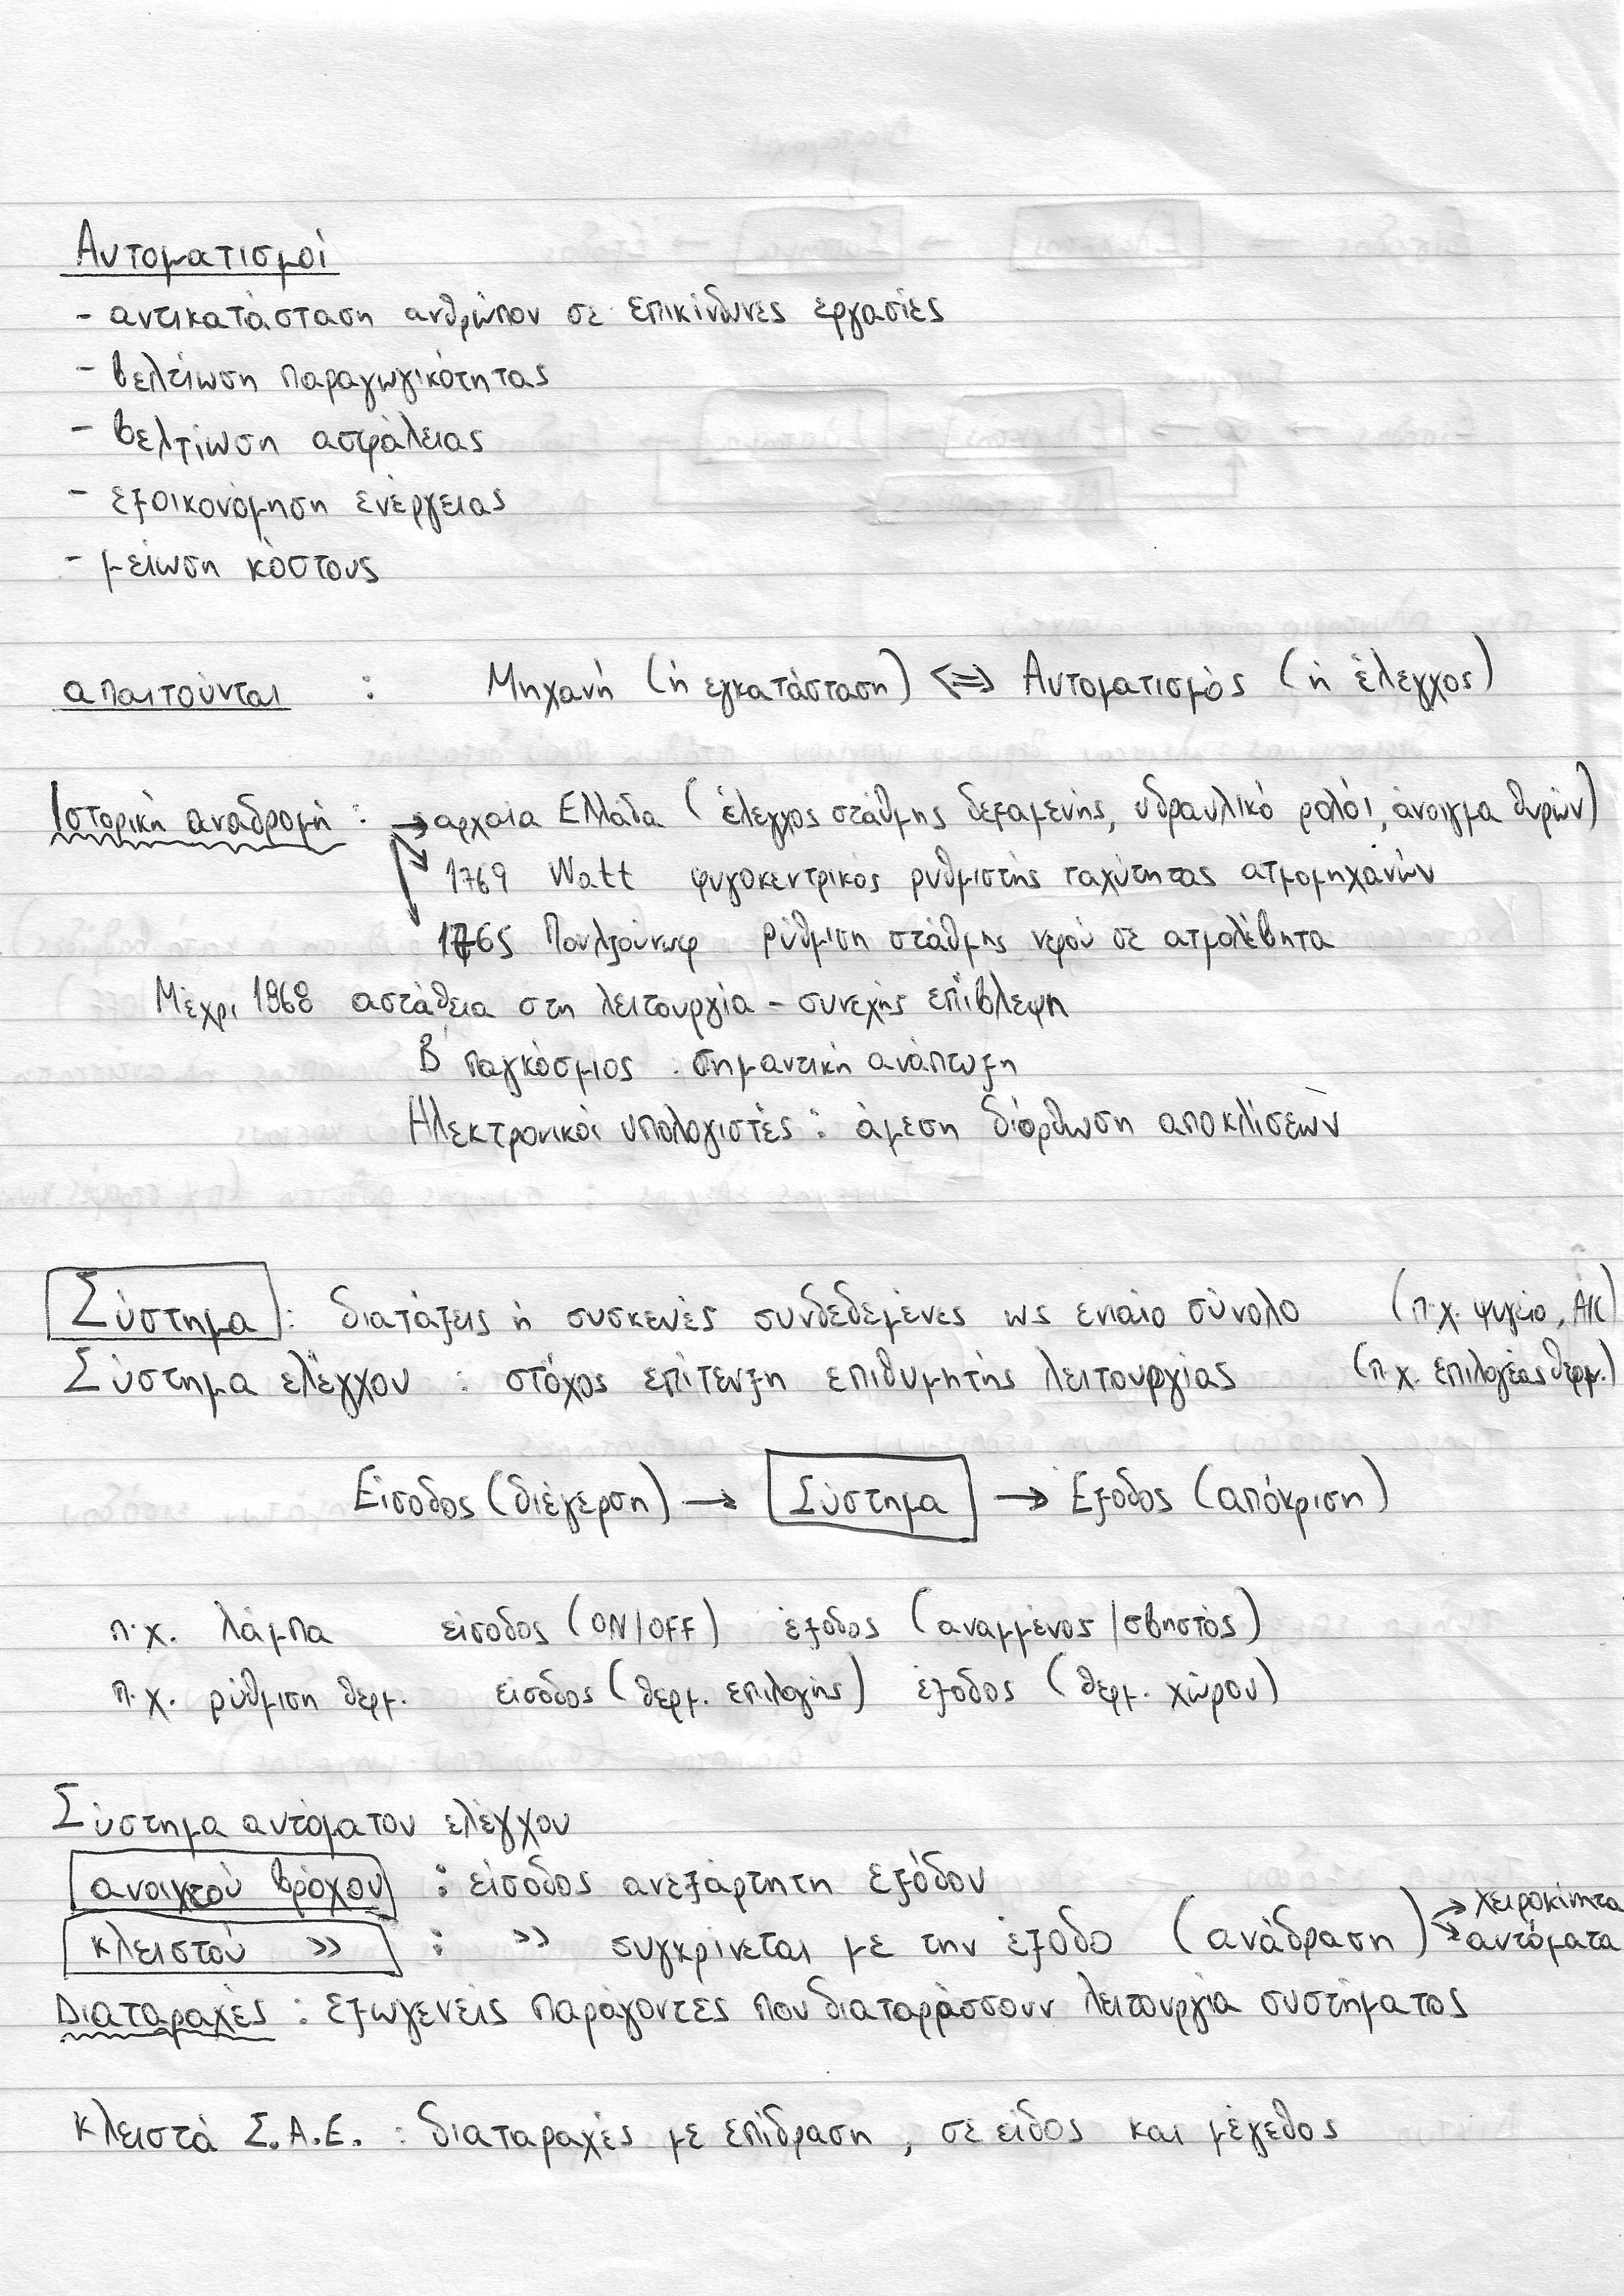 Αυτοματισμοί
- αντικατάσταση ανθρώπου σε επικίνδυνες εργασίες
- βελτίωση παραγωγικότητας
- βελτίωση ασφάλειας
- εξοικονόμηση ενέργειας
- μείωση κόστους
απαιτούνται : Μηχανή (ή εγκατάσταση) <=> Αυτοματισμός (ή έλεγχος)
Ιστορική αναδρομή : → αρχαία Ελλάδα (έλεγχος στάθμης δεξαμενής, υδραυλικό ρολόι, άνοιγμα θυρών)
1769 Watt φυγοκεντρικός ρυθμιστής ταχύτητας ατμομηχανών
1765 Πουλζούνωφ ρύθμιση στάθμης νερού σε ατμολέβητα
Μέχρι 1968 αστάθεια στη λειτουργία - συνεχής επίβλεψη
Β' παγκόσμιος : σημαντική ανάπτυξη
Ηλεκτρονικοί υπολογιστές : άμεση διόρθωση αποκλίσεων
Σύστημα : διατάξεις ή συσκευές συνδεδεμένες ως ενιαίο σύνολο (π.χ. ψυγείο, A/C)
Σύστημα ελέγχου : στόχος επίτευξη επιθυμητής λειτουργίας (π.χ. επιλογέας θερμ.)
Είσοδος (διέγερση) → Σύστημα → Έξοδος (απόκριση)
π.χ. λάμπα είσοδος (ON/OFF) έξοδος (αναμμένος/σβηστός)
π.χ. ρύθμιση θερμ. είσοδος (θερμ. επιλογής) έξοδος (θερμ. χώρου)
Σύστημα αυτόματου ελέγχου
ανοιχτού βρόχου : είσοδος ανεξάρτητη εξόδου
κλειστού » : » συγκρίνεται με την έξοδο (ανάδραση) → χειροκίνητα
→ αυτόματα
Διαταραχές : εξωγενείς παράγοντες που διαταράσσουν λειτουργία συστήματος
Κλειστά Σ.Α.Ε. : διαταραχές με επίδραση, σε είδος και μέγεθος